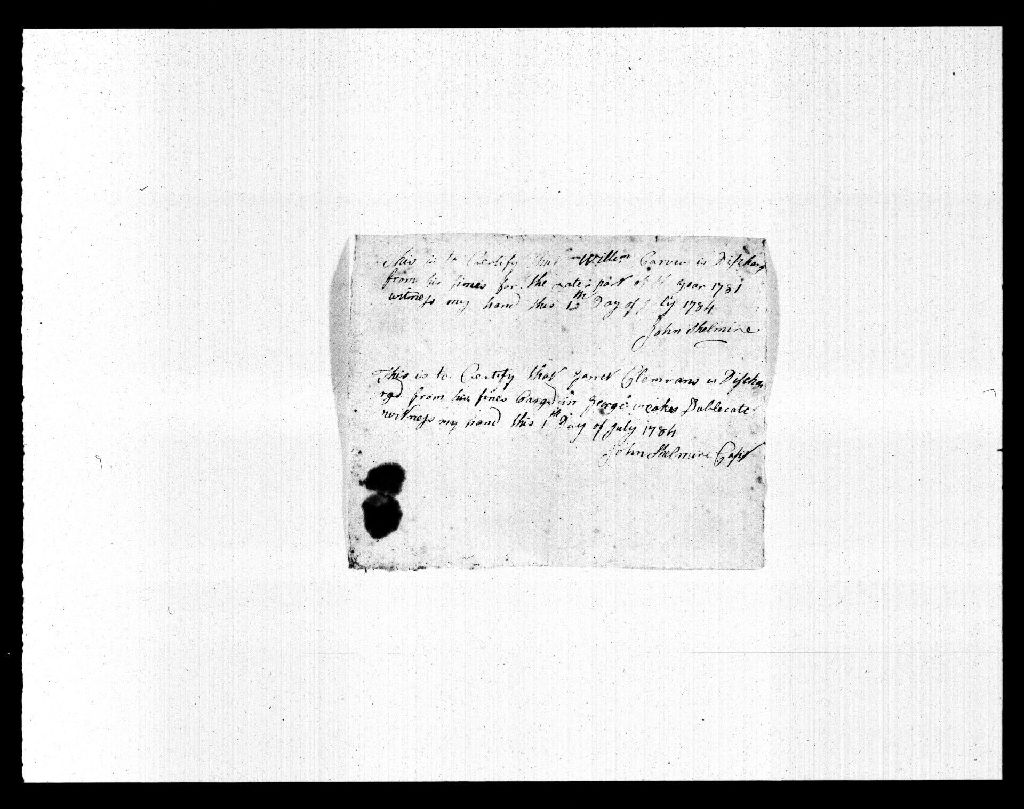 This is to Certify that Willim Garven is Discharg
from his fines for the late part of the year 1781
witness my hand this 12th Day of July 1784
John Shelmire
This is to Certify that Jarret Clemvans is Discha
rgd from his fines Chargd in George weakes Dublecate
witness my hand this 1st Day of July 1784
John Shelmire Capt